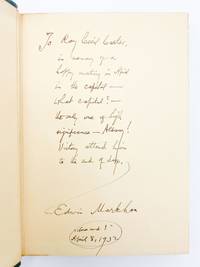 To Roy
in memory of a
happy meeting in April
in the capitol —
what capitol? —
the only one of high
significance — Albany!
Victory attend him
to the end of days.
Edwin Markham
April 8, 1932